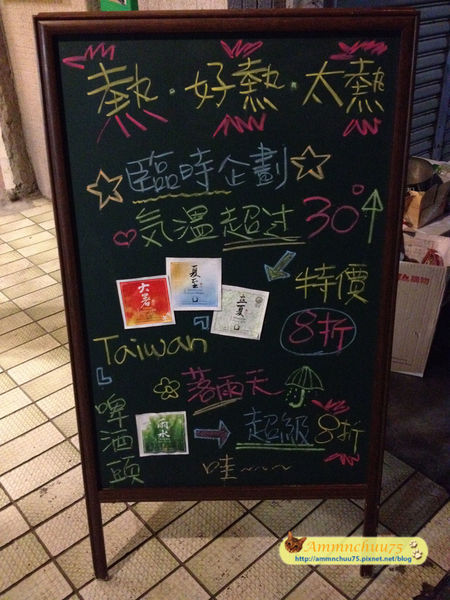 熱·好熱·太熱
臨時企劃
気溫超过30°
特價
8折
大暑
夏至
立夏
Taiwan
啤酒頭
落雨天
雨水
超級8折
哇~~~
Ammnchuu75
http://ammnchuu75.pixnet.net/blog